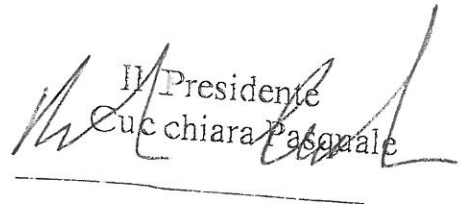 Il Presidente
Cuc chiara Pasquale